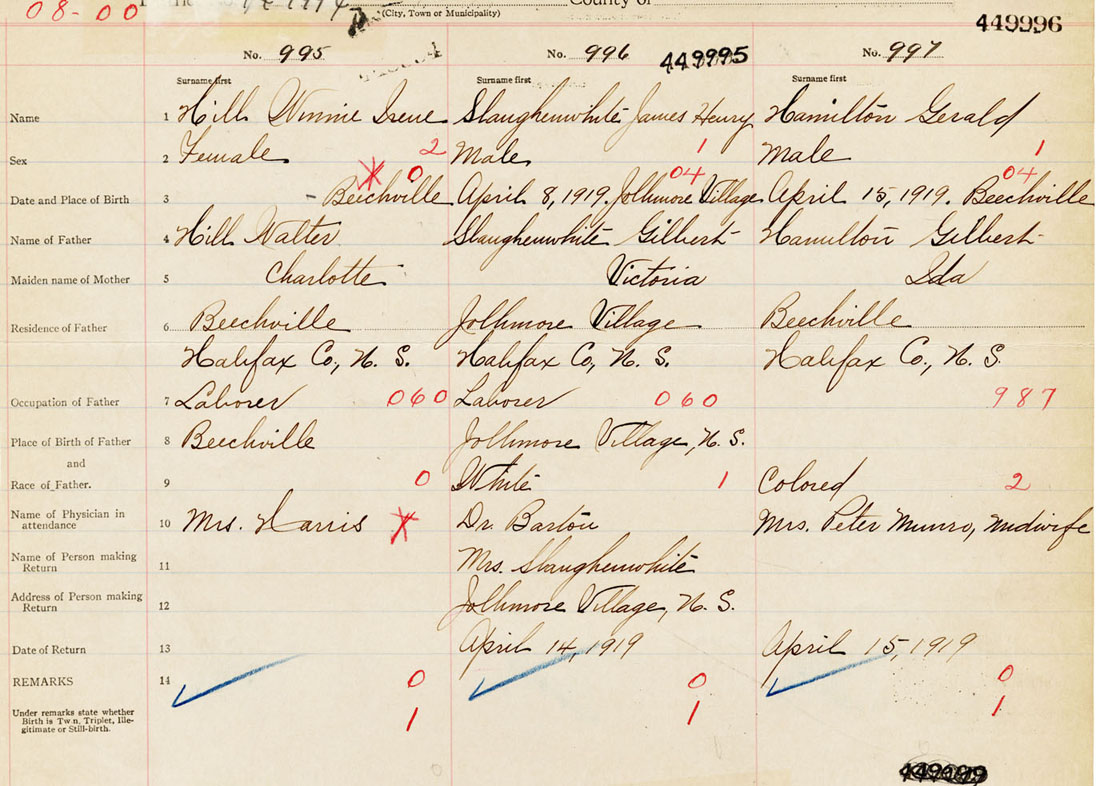 08-00
County of
(City, Town or Municipality)
449996
No. 995
No. 996
449995
No. 997
Surname first
Surname first
Surname first
Name 1 Hill Winnie Irene Slaughenwhite James Henry Hamilton Gerald
Sex 2 Female 2 Male 1 Male 1
0 04 04
Date and Place of Birth 3 - Beechville April 8, 1919. Jollimore Village April 15, 1919. Beechville
Name of Father 4 Hill Walter Slaughenwhite Gilbert Hamilton Gilbert
Maiden name of Mother 5 Charlotte Victoria Ida
Residence of Father 6 Beechville Jollimore Village Beechville
Halifax Co., N. S. Halifax Co., N. S. Halifax Co., N. S.
Occupation of Father 7 Laborer 060 Laborer 060 987
Place of Birth of Father 8 Beechville Jollimore Village, N. S.
and
Race of Father. 9 0 White 1 Colored 2
Name of Physician in attendance 10 Mrs. Harris Dr. Barton Mrs. Peter Munro, Midwife
Name of Person making Return 11 Mrs. Slaughenwhite
Address of Person making Return 12 Jollimore Village, N. S.
Date of Return 13 April 14, 1919 April 15, 1919
REMARKS 14 0 0 0
Under remarks state whether Birth is Twin, Triplet, Illegitimate or Still-birth. 1 1 1